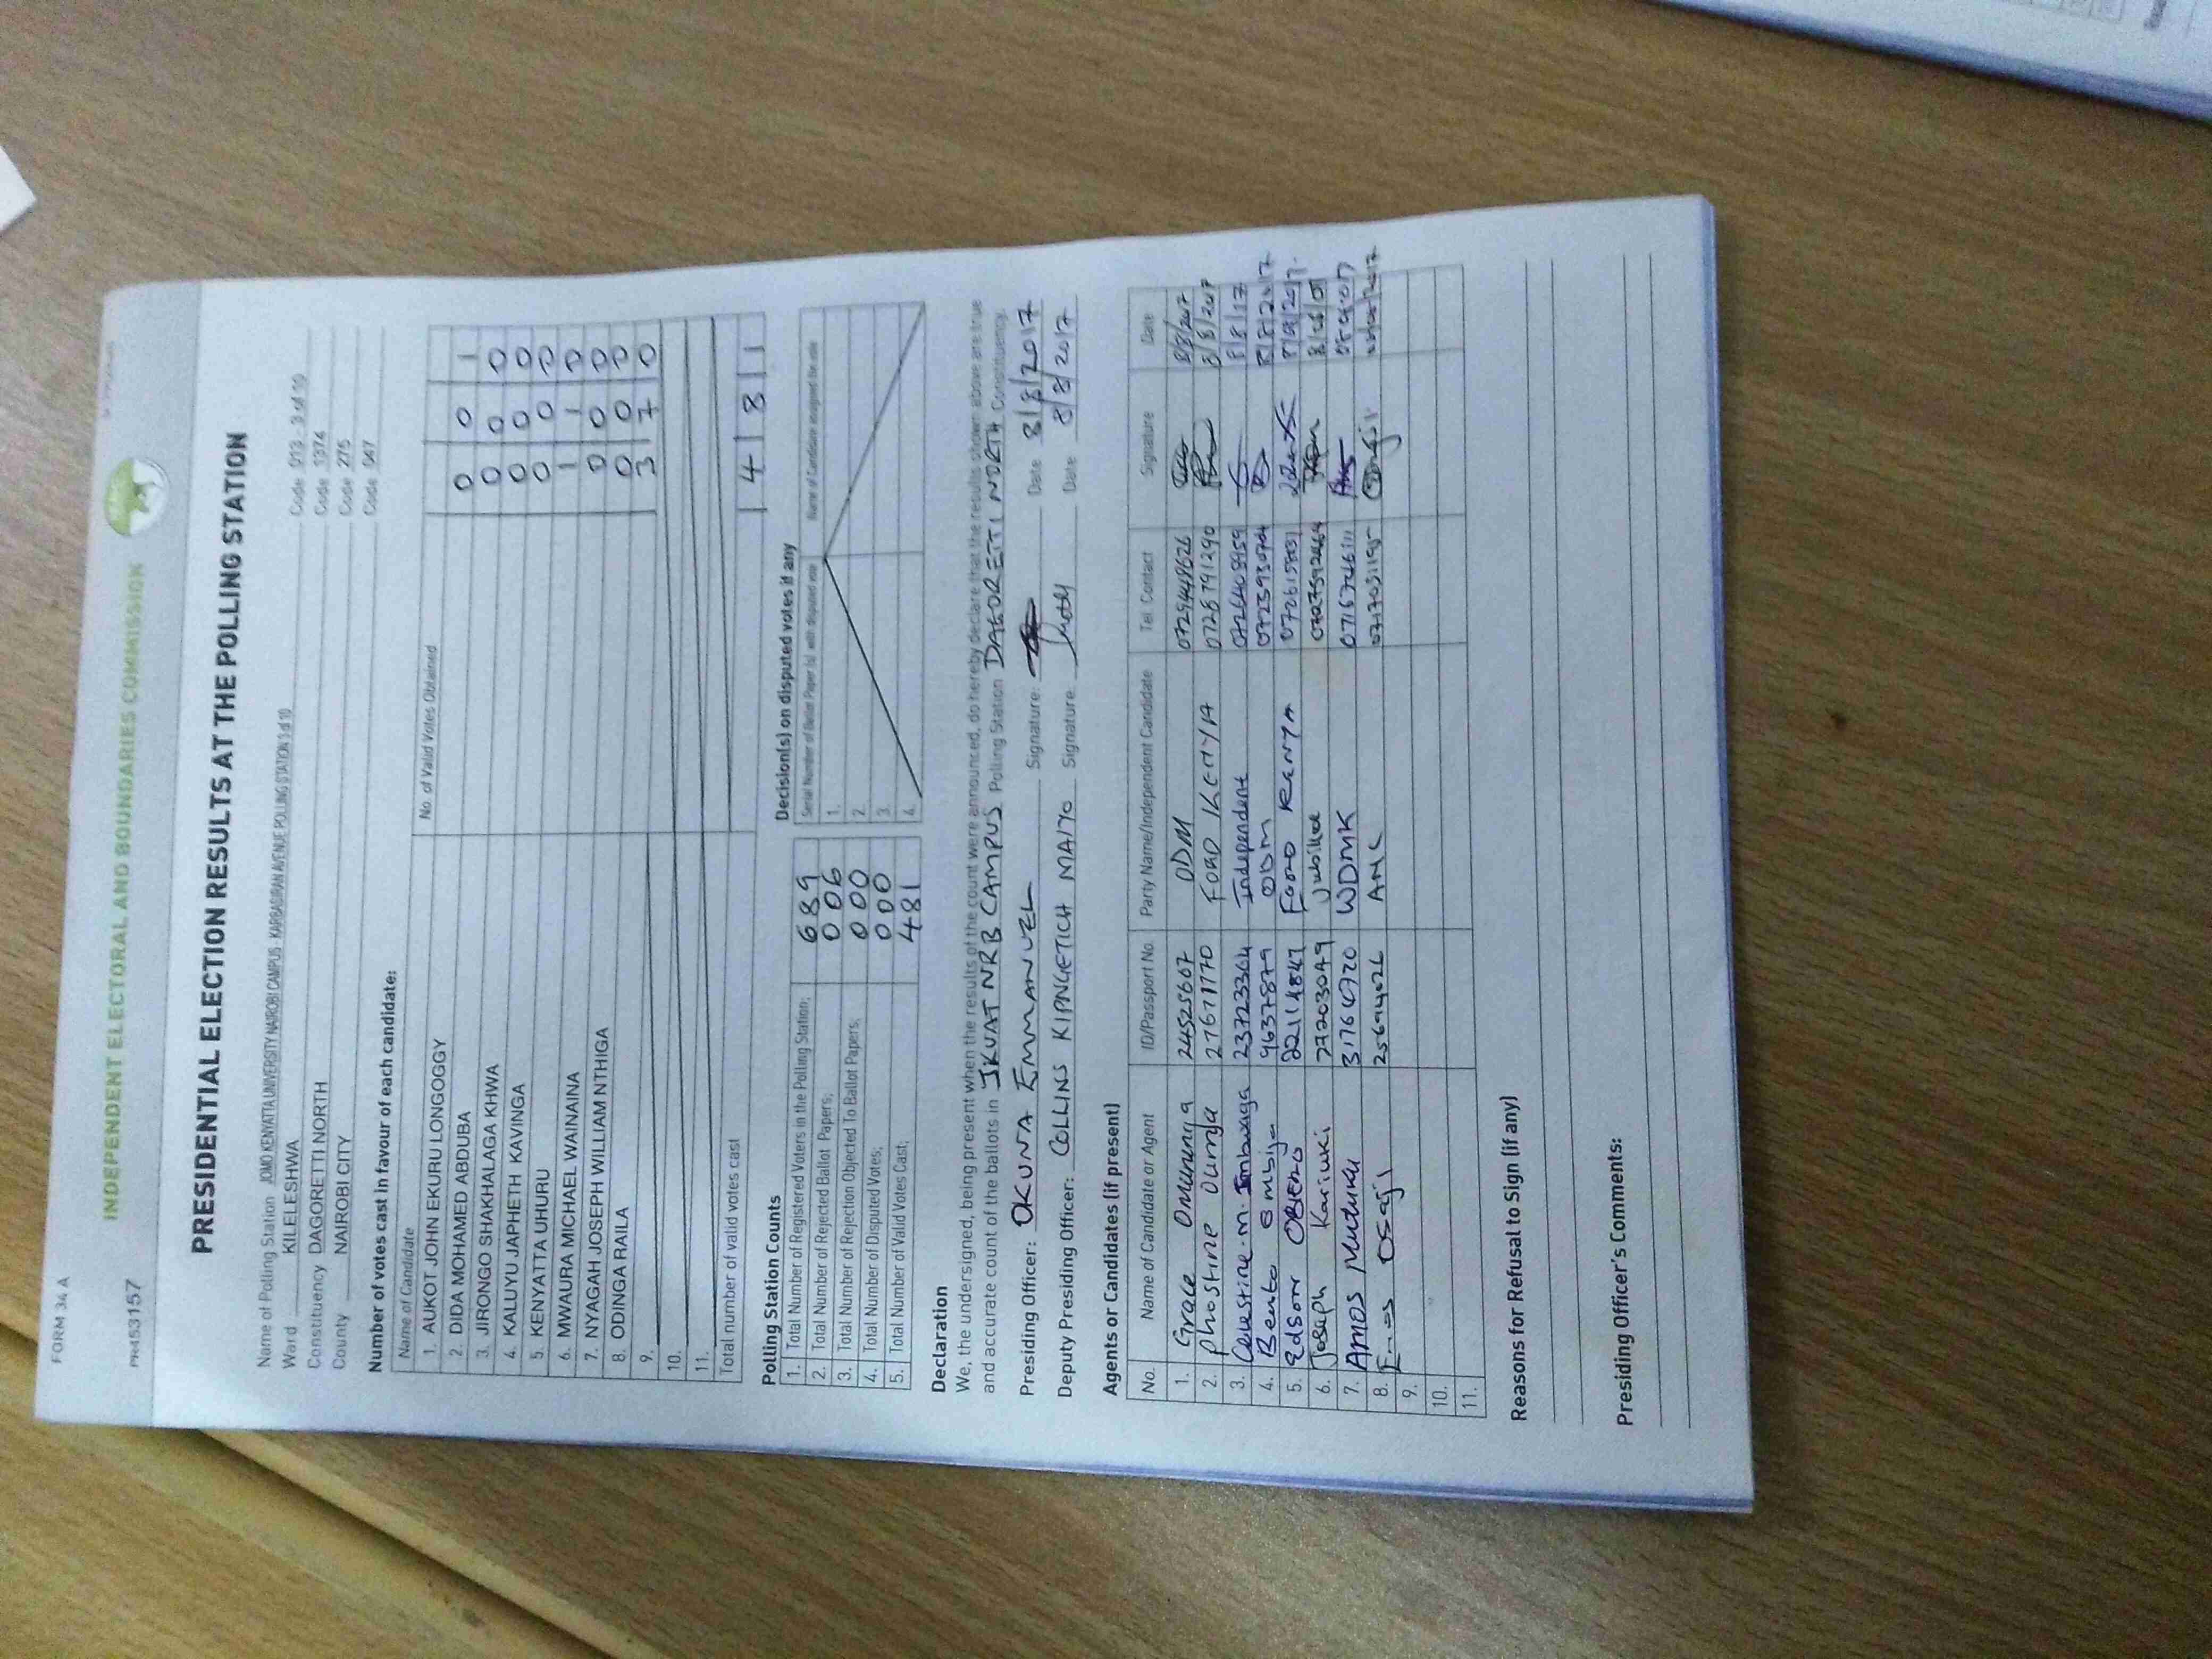 FORM 34 A
INDEPENDENT ELECTORAL AND BOUNDARIES COMMISSION
PR453157
PRESIDENTIAL ELECTION RESULTS AT THE POLLING STATION
Name of Polling Station JOMO KENYATTA UNIVERSITY NAIROBI CAMPUS - KARBASIRAN AVENUE POLLING STATION 3 of 10 Code 013 - 3 of 10
Ward KILELESHWA Code 1374
Constituency DAGORETTI NORTH Code 275
County NAIROBI CITY Code 047
Number of votes cast in favour of each candidate:
Name of Candidate No. of Valid Votes Obtained
1. AUKOT JOHN EKURU LONGOGGY 0 0 1
2. DIDA MOHAMED ABDUBA 0 0 0
3. JIRONGO SHAKHALAGA KHWA 0 0 0
4. KALUYU JAPHETH KAVINGA 0 0 0
5. KENYATTA UHURU 1 1 0
6. MWAURA MICHAEL WAINAINA 0 0 0
7. NYAGAH JOSEPH WILLIAM NTHIGA 0 0 0
8. ODINGA RAILA 3 7 0
9.
10.
11.
Total number of valid votes cast 4 8 1
Polling Station Counts
1. Total Number of Registered Voters in the Polling Station; 689
2. Total Number of Rejected Ballot Papers; 006
3. Total Number of Rejection Objected To Ballot Papers; 000
4. Total Number of Disputed Votes; 000
5. Total Number of Valid Votes Cast; 481
Decision(s) on disputed votes if any
Serial Number of Ballot Paper (s) with disputed vote Name of Candidate assigned the vote
1.
2.
3.
4.
Declaration
We, the undersigned, being present when the results of the count were announced, do hereby declare that the results shown above are true
and accurate count of the ballots in JKUAT NRB CAMPUS Polling Station DAGORETTI NORTH Constituency.
Presiding Officer: OKUNA EMMANUEL Signature: Date 8/8/2017
Deputy Presiding Officer: COLLINS KIPNGETICH MAIYO Signature: Date 8/8/2017
Agents or Candidates (if present)
No. Name of Candidate or Agent ID/Passport No. Party Name/Independent Candidate Tel. Contact Signature Date
1. Grace Omununga 24525607 ODM 0729448626 8/8/2017
2. Phostine 27671170 FORD KENYA 0728791290 8/8/2017
3. Celestine M. Imbwaga 23723364 Independent 8/8/17
4. 9637879 ODM
5. Edson OBIERO FORD KENYA
6. Joseph Kariuki 27203049 Jubilee
7. AMOS Mutuku 31764920 WDMK
8. ANC
9.
10.
11.
Reasons for Refusal to Sign (if any)
Presiding Officer's Comments: